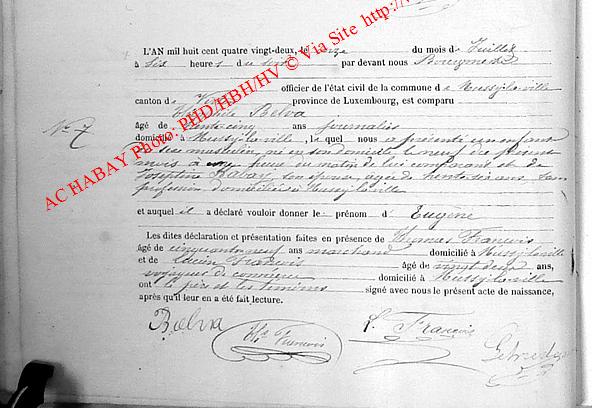 AC HABAY Photo: PHD/HBH/HV © Via Site http:/
N° 7
L'AN mil huit cent quatre vingt-deux, le onze du mois de Juillet
à six heures du soir par devant nous Bourgmestre
officier de l'état civil de la commune de Mussy-la-Ville
canton de province de Luxembourg, est comparu
Belva
âgé de trente cinq ans journalier
domicilié à Mussy-la-Ville, lequel nous a présenté un enfant
du sexe masculin, né en son domicile le neuf du présent
mois à heures du matin de lui comparant et de
Joséphine Habay, son épouse, âgée de trente six ans, sans
profession domiciliée à Mussy-la-Ville
et auquel il a déclaré vouloir donner le prénom d' Eugène
Les dites déclaration et présentation faites en présence de Thomas François
âgé de cinquante neuf ans marchand domicilié à Mussy-la-Ville
et de Lucien François âgé de vingt deux ans,
voyageur de commerce domicilié à Mussy-la-Ville
ont le père et les témoins signé avec nous le présent acte de naissance,
après qu'il leur en a été fait lecture.
Belva
Ths François
L. François